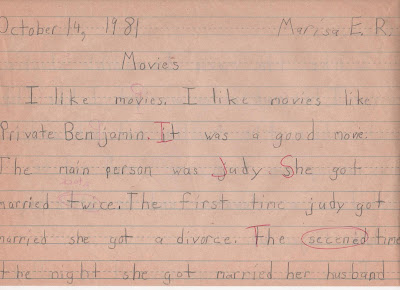 October 14, 1981 Marisa E. R.
Movies
I like movies. I like movies like
Private Benjamin. It was a good move.
The main person was Judy. She got
married twice. The first time judy got
married she got a divorce. The secened time
the night she got married her husband